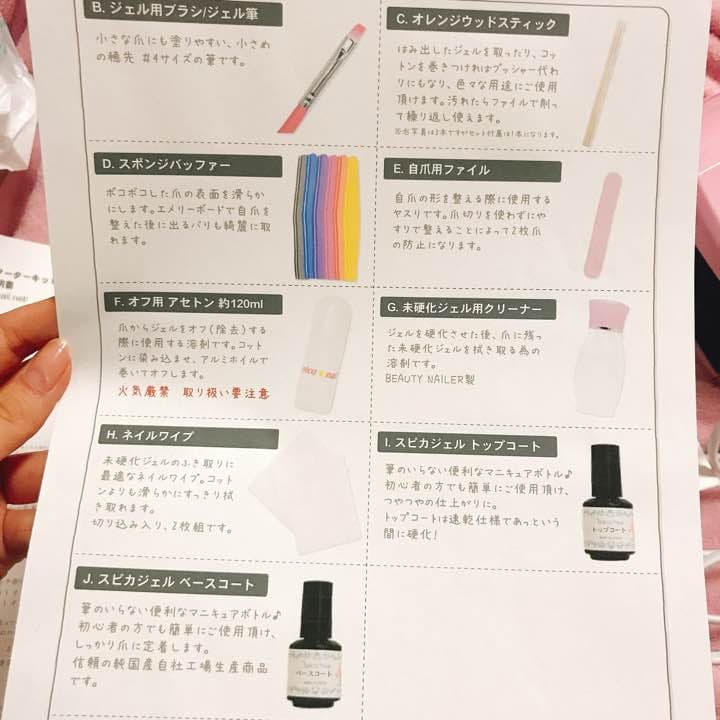 B. ジェル用ブラシ/ジェル筆
小さな爪にも塗りやすい、小さめ
の穂先 #4サイズの筆です。
C. オレンジウッドスティック
はみ出したジェルを取ったり、コッ
トンを巻きつければプッシャー代わ
りにもなり、色々な用途にご使用
頂けます。汚れたらファイルで削っ
て繰り返し使えます。
※右写真は3本ですがセット付属は1本になります。
D. スポンジバッファー
ボコボコした爪の表面を滑らか
にします。エメリーボードで自爪を
整えた後に出るバリも綺麗に取
れます。
E. 自爪用ファイル
自爪の形を整える際に使用する
ヤスリです。爪切りを使わずにや
すりで整えることによって2枚爪
の防止になります。
F. オフ用 アセトン 約120ml
爪からジェルをオフ(除去)する
際に使用する溶剤です。コット
ンに染み込ませ、アルミホイルで
巻いてオフします。
火気厳禁 取り扱い要注意
G. 未硬化ジェル用クリーナー
ジェルを硬化させた後、爪に残っ
た未硬化ジェルを拭き取る為の
溶剤です。
BEAUTY NAILER製
H. ネイルワイプ
未硬化ジェルのふき取りに
最適なネイルワイプ。コット
ンよりも滑らかにすっきり拭
き取れます。
切り込み入り、2枚組です。
I. スピカジェル トップコート
筆のいらない便利なマニキュアボトル♪
初心者の方でも簡単にご使用頂け、
つやつやの仕上がりに。
トップコートは速乾仕様であっという
間に硬化!
トップコート
J. スピカジェル ベースコート
筆のいらない便利なマニキュアボトル♪
初心者の方でも簡単にご使用頂け、
しっかり爪に定着します。
信頼の純国産自社工場生産商品
です。
ベースコート
ーターキッ